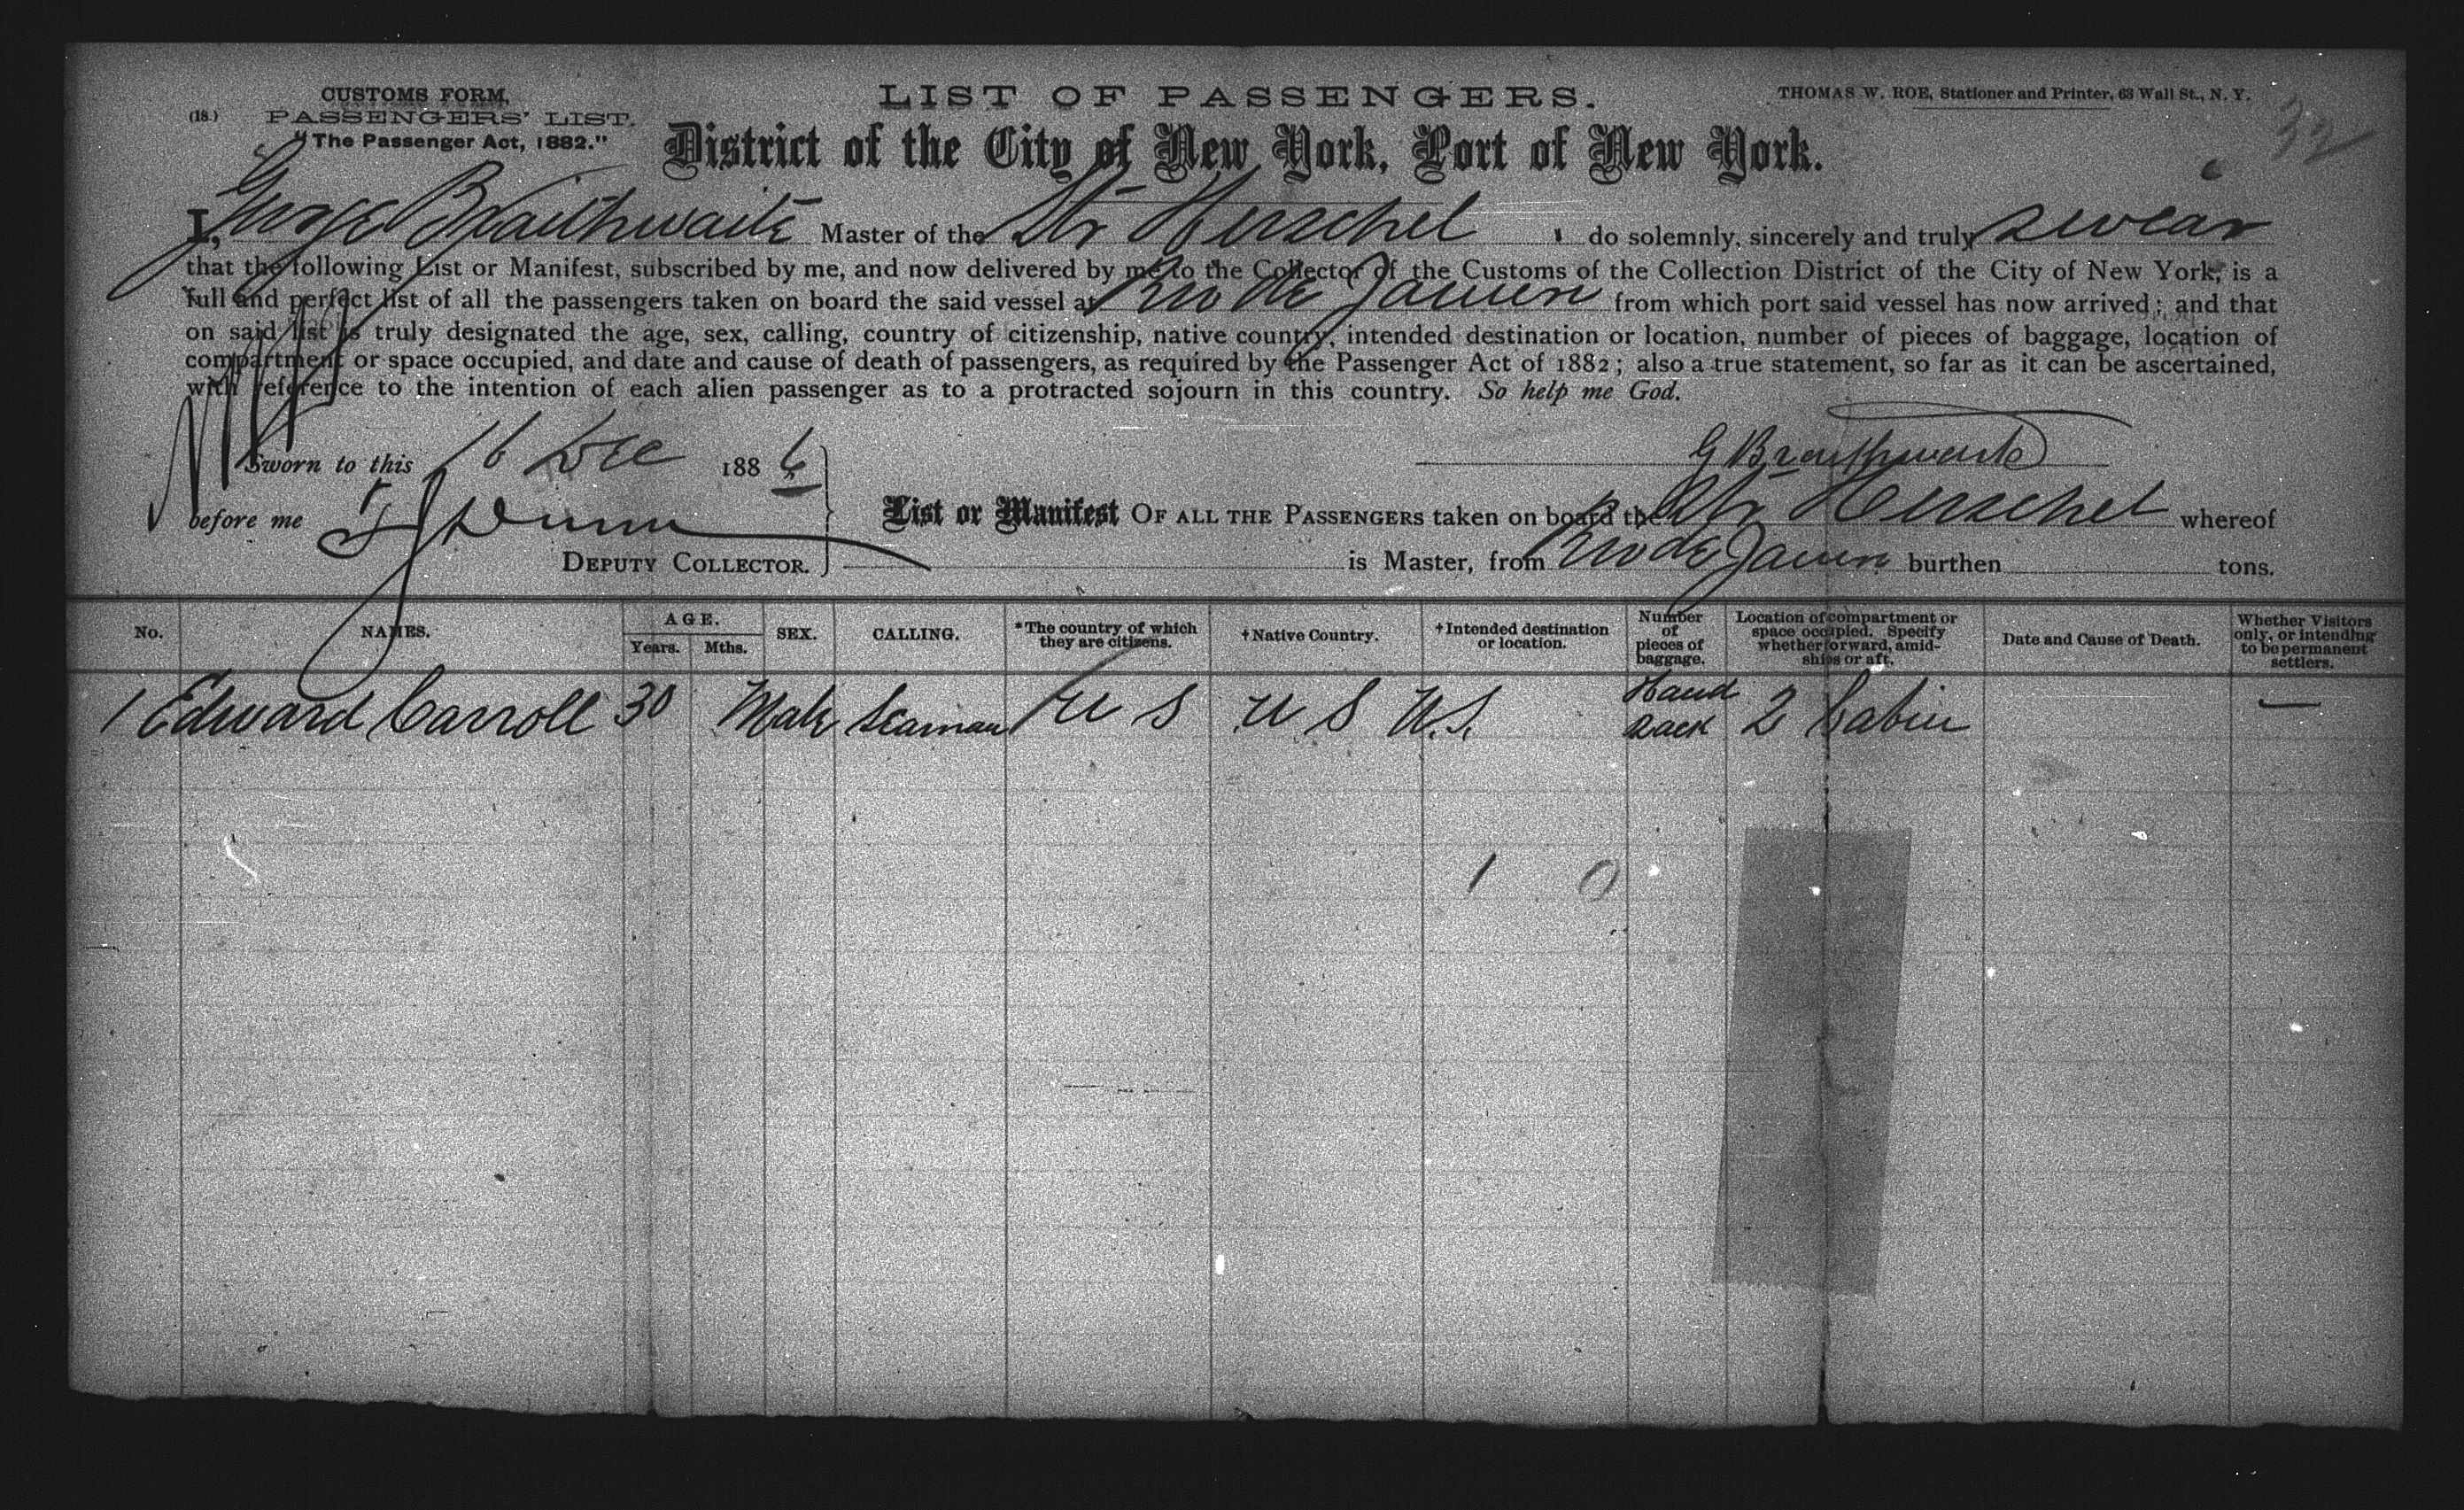 CUSTOMS FORM,
(18.) PASSENGERS' LIST.
"The Passenger Act, 1882."
LIST OF PASSENGERS.
THOMAS W. ROE, Stationer and Printer, 63 Wall St., N. Y.
32
District of the City of New York, Port of New York.
I, George Braithwaite Master of the Str Herschel do solemnly, sincerely and truly swear
that the following List or Manifest, subscribed by me, and now delivered by me to the Collector of the Customs of the Collection District of the City of New York, is a
full and perfect list of all the passengers taken on board the said vessel at Rio de Janien from which port said vessel has now arrived; and that
on said list is truly designated the age, sex, calling, country of citizenship, native country, intended destination or location, number of pieces of baggage, location of
compartment or space occupied, and date and cause of death of passengers, as required by the Passenger Act of 1882; also a true statement, so far as it can be ascertained,
with reference to the intention of each alien passenger as to a protracted sojourn in this country. So help me God.
Sworn to this 16 Dec 1886
G Braithwaite
before me Dunn
DEPUTY COLLECTOR.
List or Manifest OF ALL THE PASSENGERS taken on board the Str Herschel whereof
is Master, from Rio de Janien burthen tons.
No. NAMES. AGE. Years. Mths. SEX. CALLING. *The country of which they are citizens. †Native Country. †Intended destination or location. Number of pieces of baggage. Location of compartment or space occupied. Specify whether forward, amidships or aft. Date and Cause of Death. Whether Visitors only, or intending to be permanent settlers.
1 Edward Carroll 30 Male Seaman U S U S U.S. Hand Sack 2 Cabin —
1 0